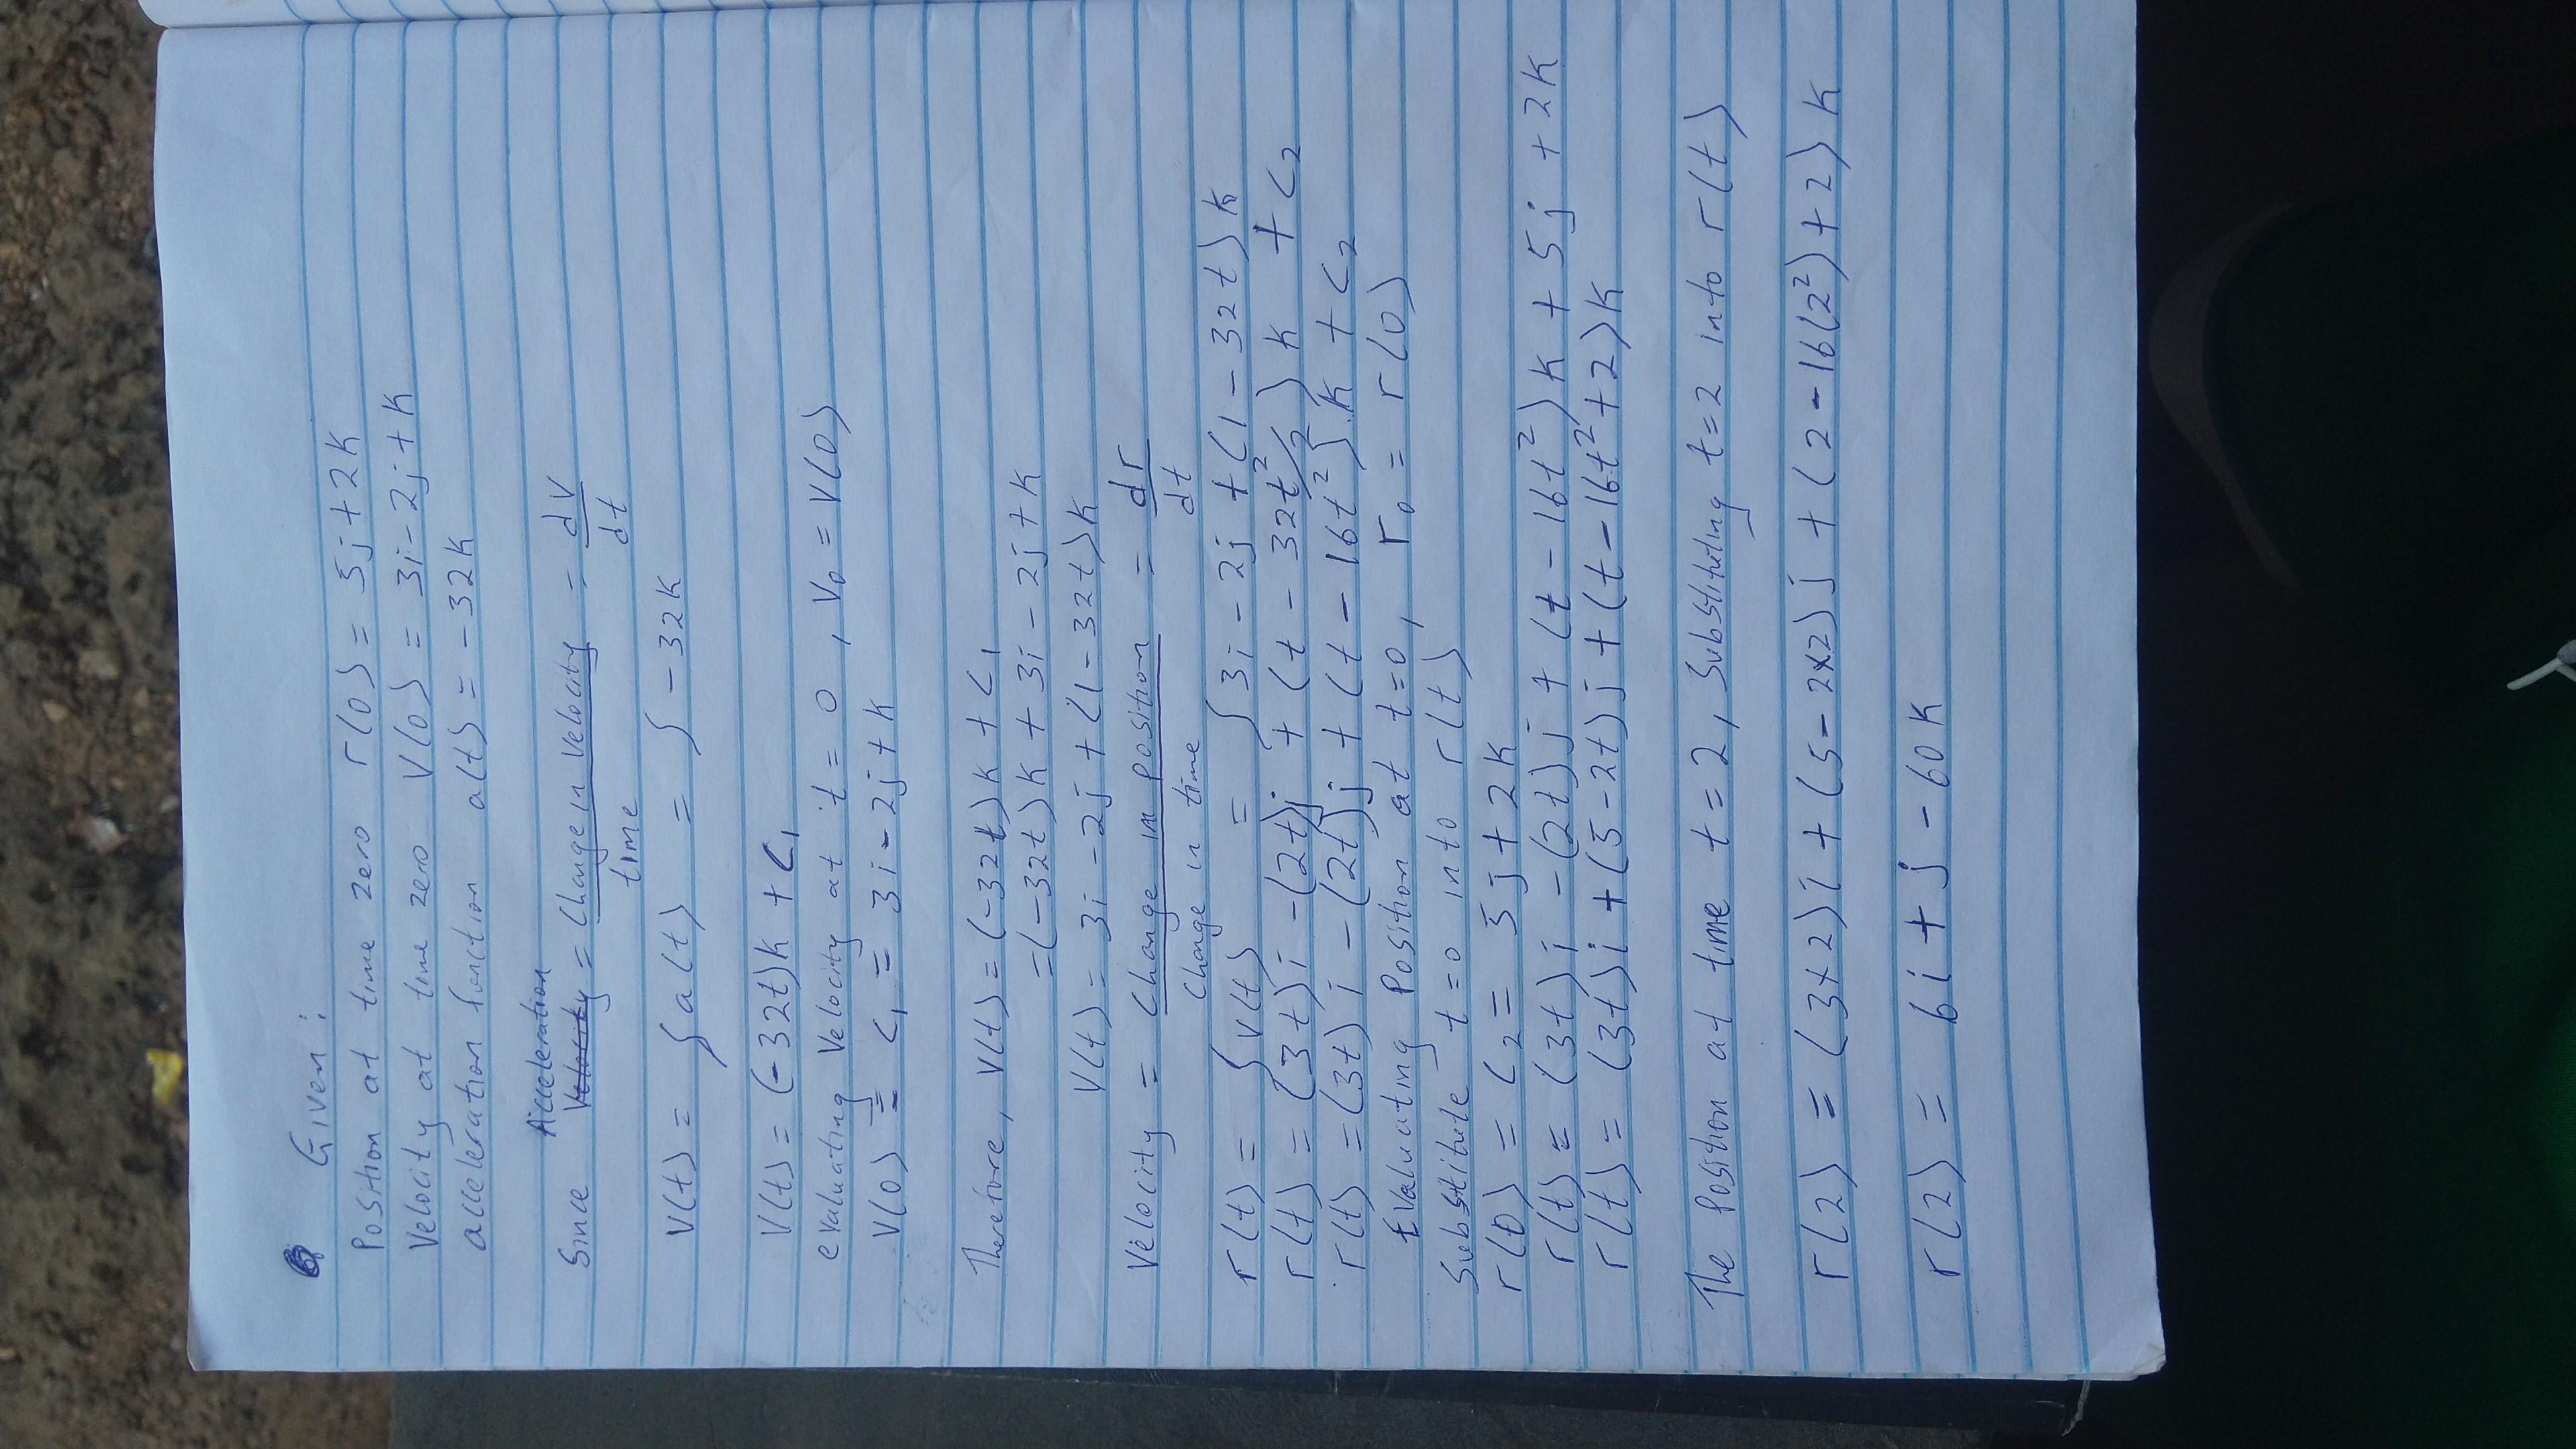 Given:
Position at time zero r(0) = 5j + 2k
Velocity at time zero V(0) = 3i - 2j + k
acceleration function a(t) = -32k
Acceleration
Since Velocity = Change in Velocity = dV
time dt
V(t) = ∫a(t) = ∫-32k
V(t) = (-32t)k + C₁
evaluating Velocity at t = 0, V₀ = V(0)
V(0) = C₁ = 3i - 2j + k
Therefore, V(t) = (-32t)k + C₁
= (-32t)k + 3i - 2j + k
V(t) = 3i - 2j + (1 - 32t)k
Velocity = Change in Position = dr
Change in time dt
r(t) = ∫V(t) = ∫3i - 2j + (1 - 32t)k
r(t) = (3t)i - (2t)j + (t - 32t²/2)k + C₂
r(t) = (3t)i - (2t)j + (t - 16t²)k + C₂
Evaluating Position at t=0, r₀ = r(0)
Substitute t=0 into r(t)
r(0) = C₂ = 5j + 2k
r(t) = (3t)i - (2t)j + (t - 16t²)k + 5j + 2k
r(t) = (3t)i + (5 - 2t)j + (t - 16t² + 2)k
The Position at time t = 2, Substituting t=2 into r(t)
r(2) = (3x2)i + (5 - 2x2)j + (2 - 16(2²) + 2)k
r(2) = 6i + j - 60k